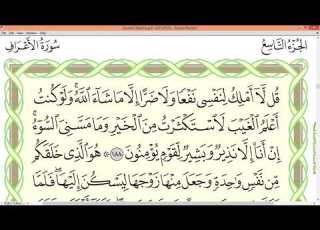 سُورَةُ الأَعْرَافِ الجُزْءُ التَّاسِعُ
قُل لَّآ أَمْلِكُ لِنَفْسِى نَفْعًا وَلَا ضَرًّا إِلَّا مَا شَآءَ ٱللَّهُ ۚ وَلَوْ كُنتُ
أَعْلَمُ ٱلْغَيْبَ لَٱسْتَكْثَرْتُ مِنَ ٱلْخَيْرِ وَمَا مَسَّنِىَ ٱلسُّوٓءُ ۚ
إِنْ أَنَا۠ إِلَّا نَذِيرٌ وَبَشِيرٌ لِّقَوْمٍ يُؤْمِنُونَ ١٨٨ هُوَ ٱلَّذِى خَلَقَكُم
مِّن نَّفْسٍ وَٰحِدَةٍ وَجَعَلَ مِنْهَا زَوْجَهَا لِيَسْكُنَ إِلَيْهَا ۖ فَلَمَّا